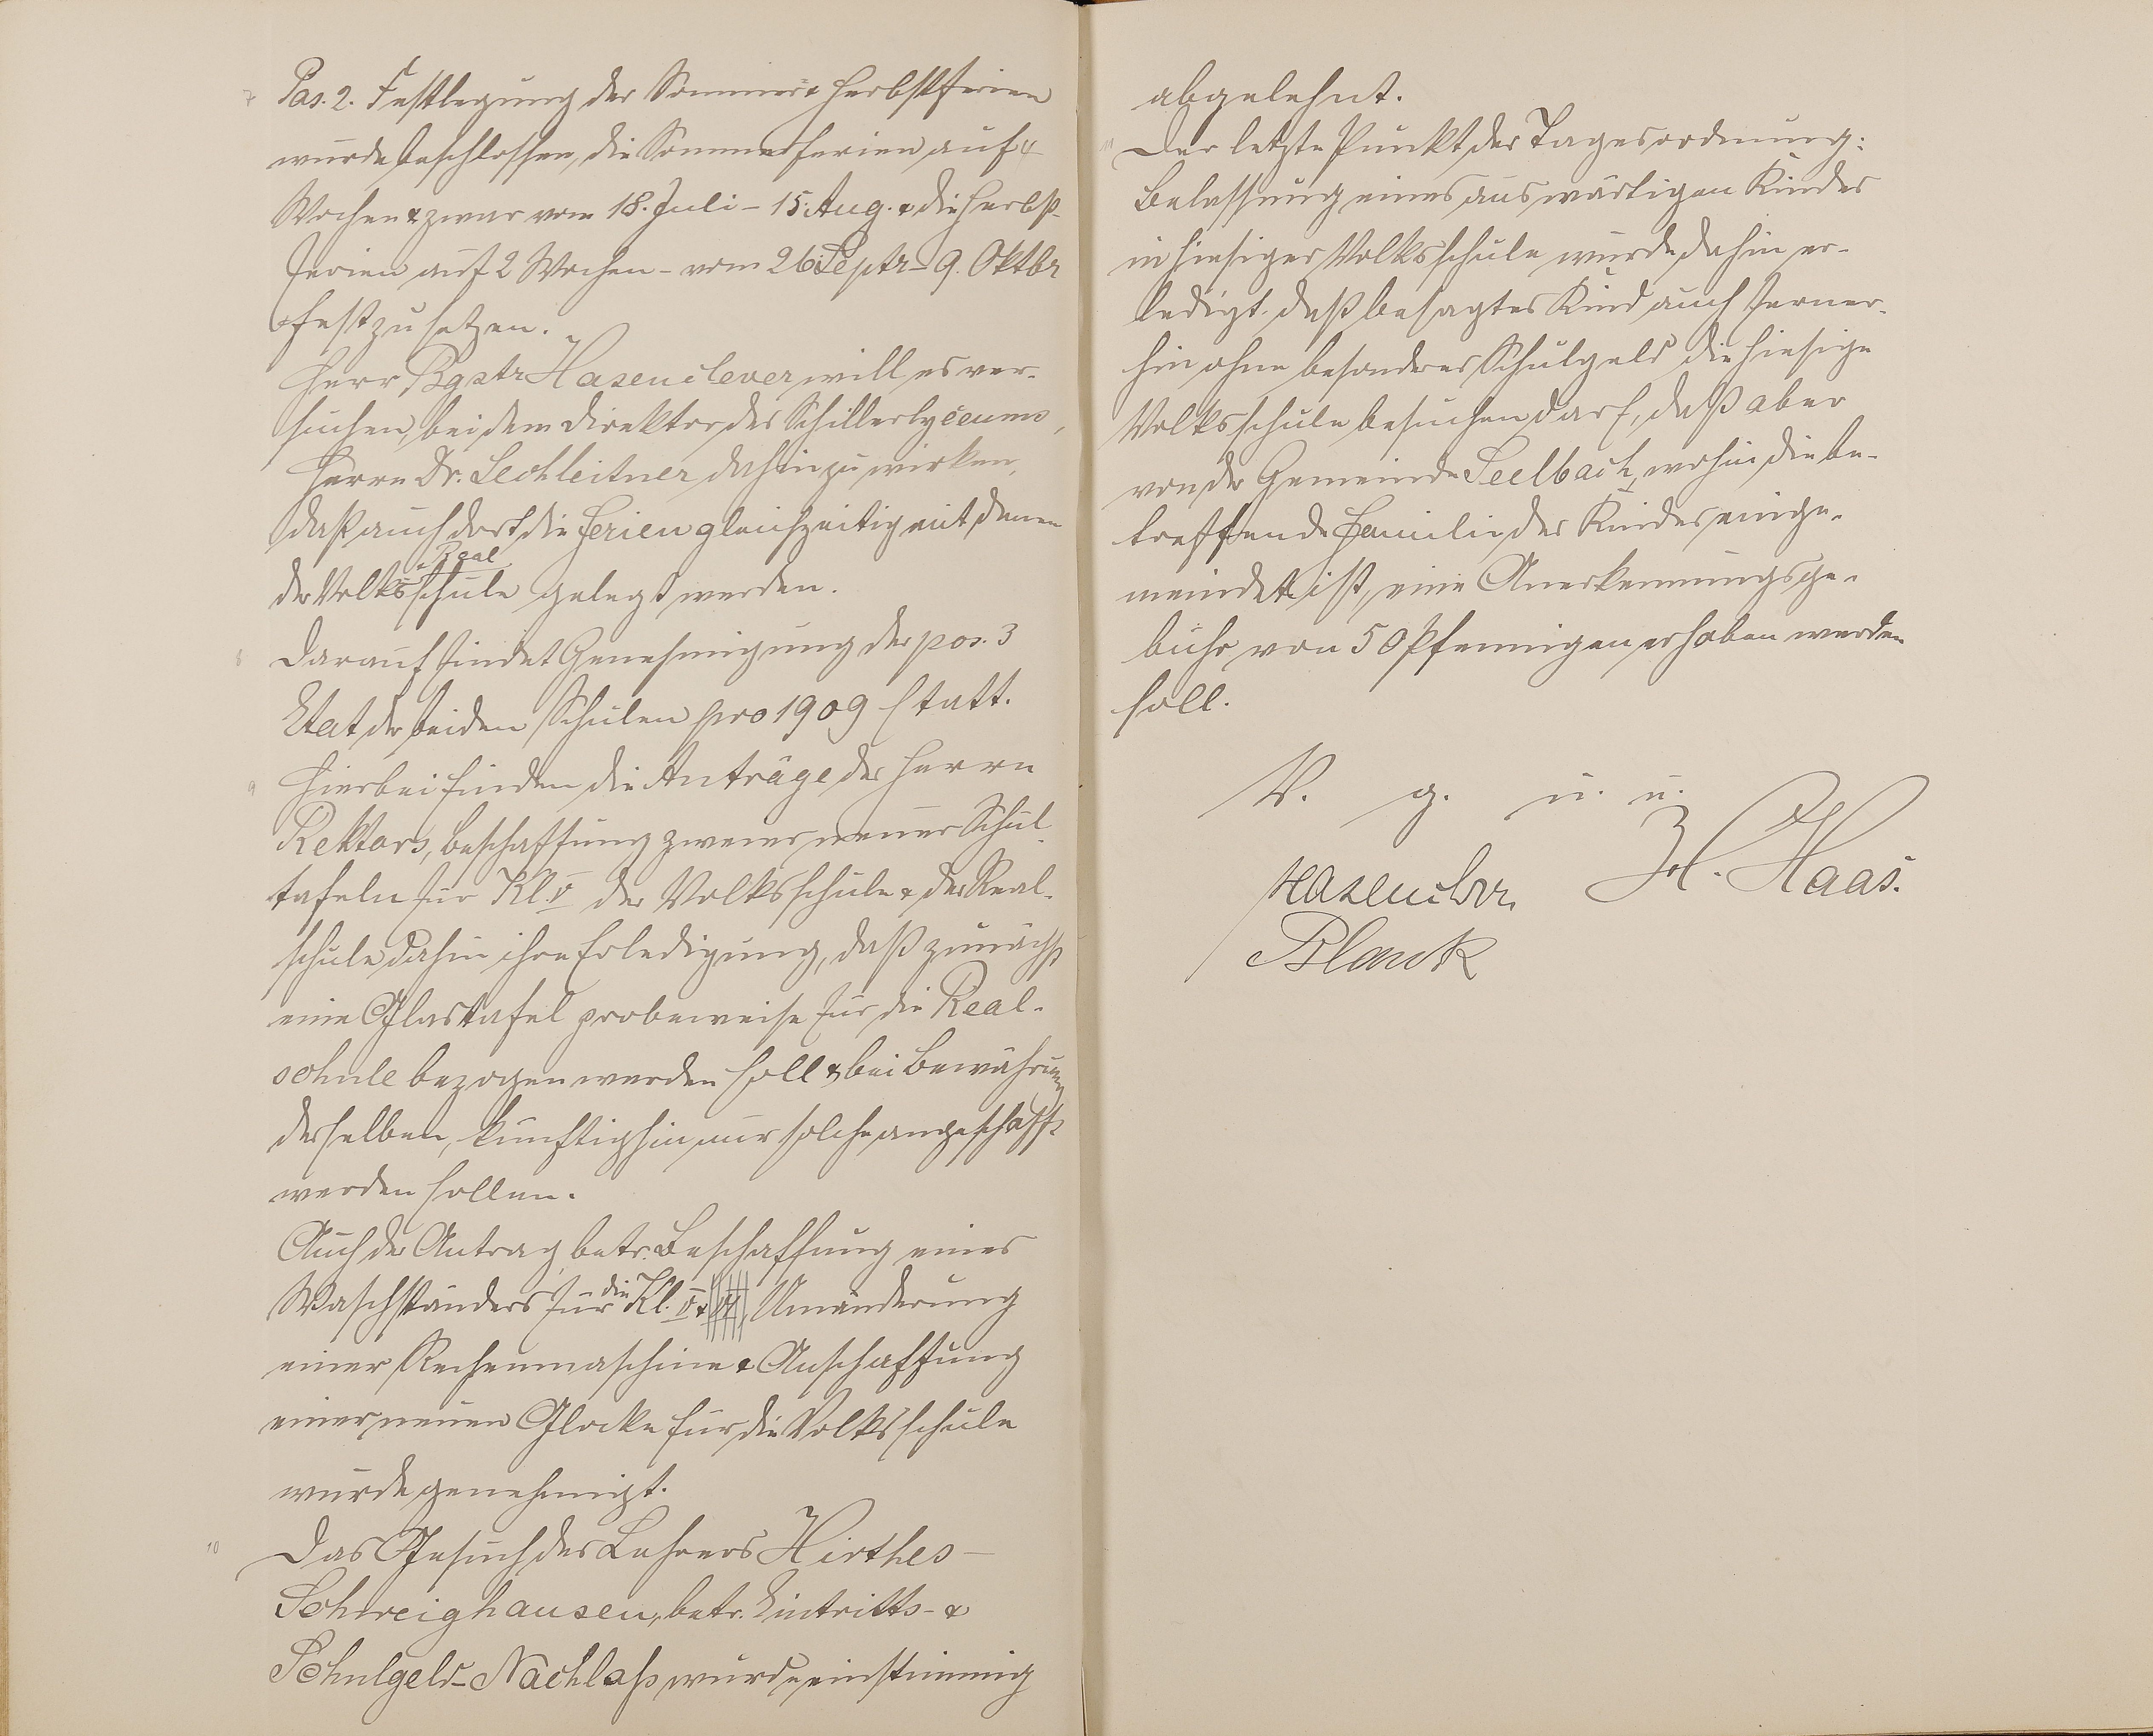 7 Pos. 2. Festlegung der Sommer & Herbstferien
wurde beschlossen, die Sommerferien auf 4
Wochen & zwar vom 18. Juli – 15. Aug. & die Herbst-
ferien auf 2 Wochen – vom 26. Septr – 9. Oktbr
festzusetzen.
Herr Bgstr Hasenclever will es ver-
suchen, bei dem Direktor des Schillerlyceums,
Herrn Dr. Lechleitner dahin zu wirken,
daß auch dort die Ferien gleichzeitig mit denen
& Real
der Volksschule gelegt werden.
8 Darauf findet Genehmigung der pos. 3
Etat der beiden Schulen pro 1909 statt.
9 Hierbei finden die Anträge des Herrn
Rektors, Beschaffung zweier neuer Schul-
tafeln für Kl. V der Volksschule & der Real-
schule dahin ihre Erledigung, daß zunächst
eine Glastafel probeweise für die Real-
schule bezogen werden soll & bei Bewährung
derselben, künftighin nur solche angeschafft
werden sollen.
Auch der Antrag betr. Beschaffung eines
Waschständers für die Kl. V & VI, Umänderung
einer Rechenmaschine & Anschaffung
einer neuen Glocke für die Volksschule
wurde genehmigt.
10 Das Gesuch des Lehrers Hirthes –
Schweighausen, betr. Eintritts- &
Schulgeld-Nachlaß wurde einstimmig
abgelehnt.
11 Der letzte Punkt der Tagesordnung:
Belassung eines auswärtigen Kindes
in hiesiger Volksschule wurde dahin er-
ledigt, daß besagtes Kind auch ferner-
hin ohne besonderes Schulgeld die hiesige
Volksschule besuchen darf, daß aber
von der Gemeinde Seelbach, wohin die be-
treffende Familie des Kindes einge-
meindet ist, eine Anerkennungsge-
bühr von 50 Pfennigen erhoben werden
soll.
V. g. u. u.
Hasenclever. H. Haas.
Blank